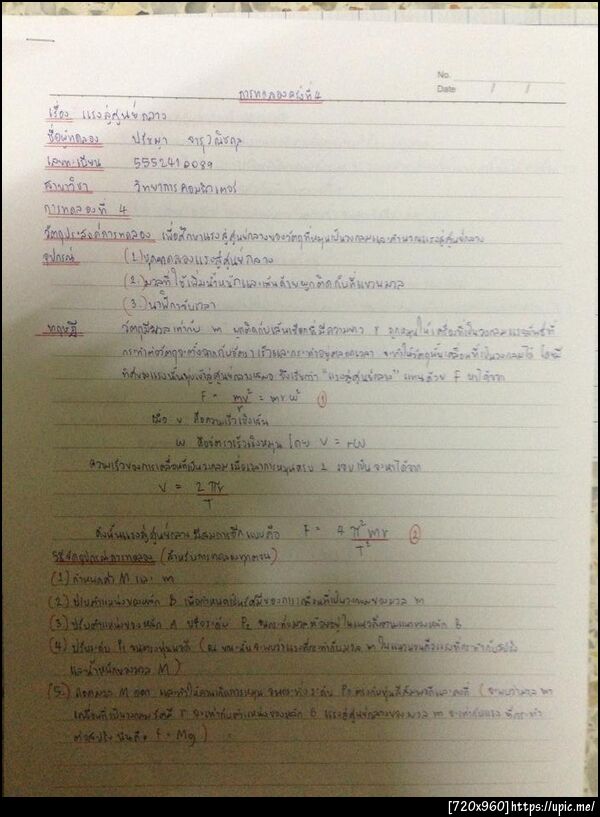 No.
Date / /
การทดลองครั้งที่ 4
เรื่อง แรงสู่ศูนย์กลาง
ชื่อผู้ทดลอง ปรัชญา
เลขทะเบียน 5552410089
สาขาวิชา วิทยาการคอมพิวเตอร์
การทดลองที่ 4
วัตถุประสงค์การทดลอง เพื่อศึกษาแรงสู่ศูนย์กลางของวัตถุที่หมุนเป็นวงกลมและคำนวณแรงสู่ศูนย์กลาง
อุปกรณ์ (1.) ชุดทดลองแรงสู่ศูนย์กลาง
(2.) มวลที่ใช้เพิ่มน้ำหนักและเส้นด้ายผูกติดกับที่แขวนมวล
(3.) นาฬิกาจับเวลา
ทฤษฎี วัตถุมีมวลเท่ากับ m ผูกติดกับเส้นเชือกที่มีความยาว r ถูกหมุนให้เคลื่อนที่เป็นวงกลมแรงลัพธ์ที่
กระทำต่อวัตถุจะตั้งฉากกับอัตราเร็วและกระทำอยู่ตลอดเวลา จะทำให้วัตถุนั้นเคลื่อนที่เป็นวงกลมได้ โดยมี
ทิศของแรงนั้นพุ่งเข้าสู่ศูนย์กลางเสมอ จึงเรียกว่า "แรงสู่ศูนย์กลาง" แทนด้วย F หาได้จาก
F = mv²/r = mrω² (1)
เมื่อ v คือความเร็วเชิงเส้น
ω คืออัตราเร็วเชิงหมุน โดย v = rω
ความเร็วของการเคลื่อนที่เป็นวงกลมเมื่อเวลาการหมุนครบ 1 รอบเป็น จะหาได้จาก
v = 2πr/T
ดังนั้นแรงสู่ศูนย์กลางมีสมการอีกแบบคือ F = 4π²mr/T² (2)
วิธีจัดอุปกรณ์การทดลอง (สำหรับการทดลองทุกตอน)
(1) กำหนดค่า M และ m
(2) ปรับตำแหน่งของหลัก B เพื่อกำหนดเป็นรัศมีของการเคลื่อนที่เป็นวงกลมของมวล m
(3) ปรับตำแหน่งของหลัก A ปรับระดับ P₂ จนกระทั่งมวล m อยู่ในแนวดิ่งตามแนวของหลัก B
(4) ปรับระดับ P₁ จนตรงทุ่นพอดี
และน้ำหนักของมวล M)
(5) ถอดมวล M ออก และทำให้แกนเกิดการหมุน จนกระทั่งระดับ P₁ ตรงกับทุ่นสีส้มพอดีและคงที่ (จะพบว่ามวล m
เคลื่อนที่เป็นวงกลม รัศมี r จะเท่ากับตำแหน่งของหลัก B แรงสู่ศูนย์กลางของมวล m จะเท่ากับแรง ที่กระทำ
ต่อสปริง นั่นคือ F = Mg)
[720x960]https://upic.me/